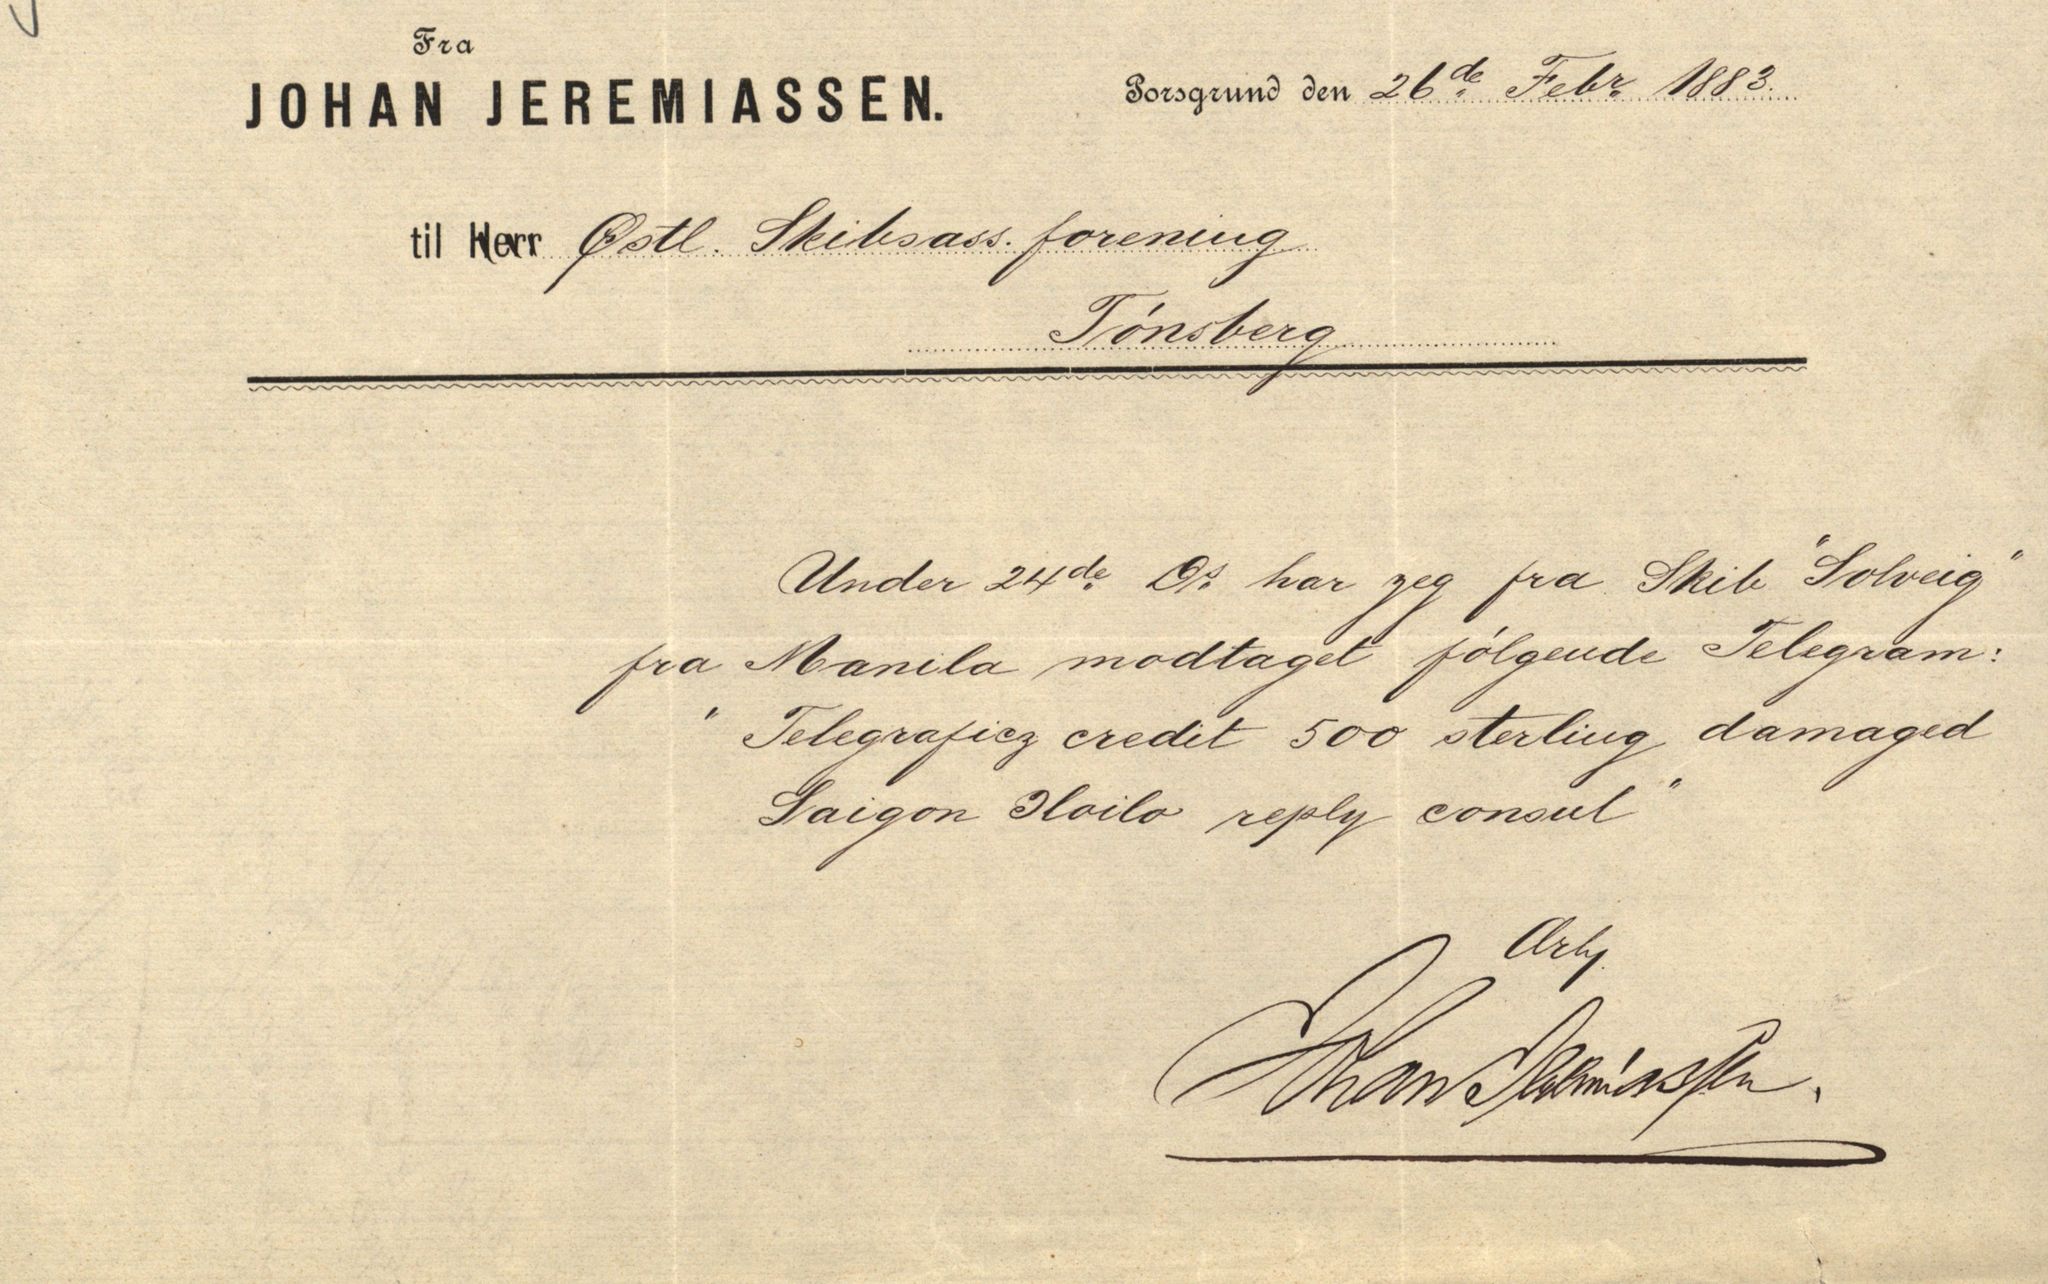 Fra
JOHAN JEREMIASSEN.
Porsgrund den 26de Febr. 1883.
til Herr Østl. Skibsass. forening
Tónsberg
Under 24de Ds. har jeg fra Skib "Solveig"
fra Manila modtaget følgende Telegram:
" Telegraficz credit 500 sterling damaged
Saigon Iloilo reply consul"
Ærb.
Johan Jeremiassen.